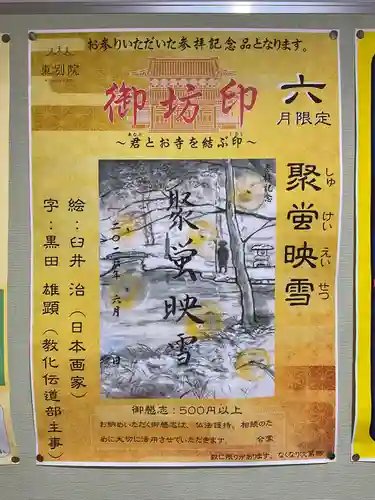 お参りいただいた参拝記念品となります。
東別院
御坊印
～君とお寺を結ぶ印～
あなた
しるし
六
月限定
聚蛍映雪
しゅ けい えい せつ
聚蛍映雪
六月
日
絵：臼井 治（日本画家）
字：黒田 雄顕（教化伝道部主事）
御懇志：500円以上
お納めいただく御懇志は、仏法護持、相続のた
めに大切に活用させていただきます。 合掌
数に限りがあります。なくなり次第終